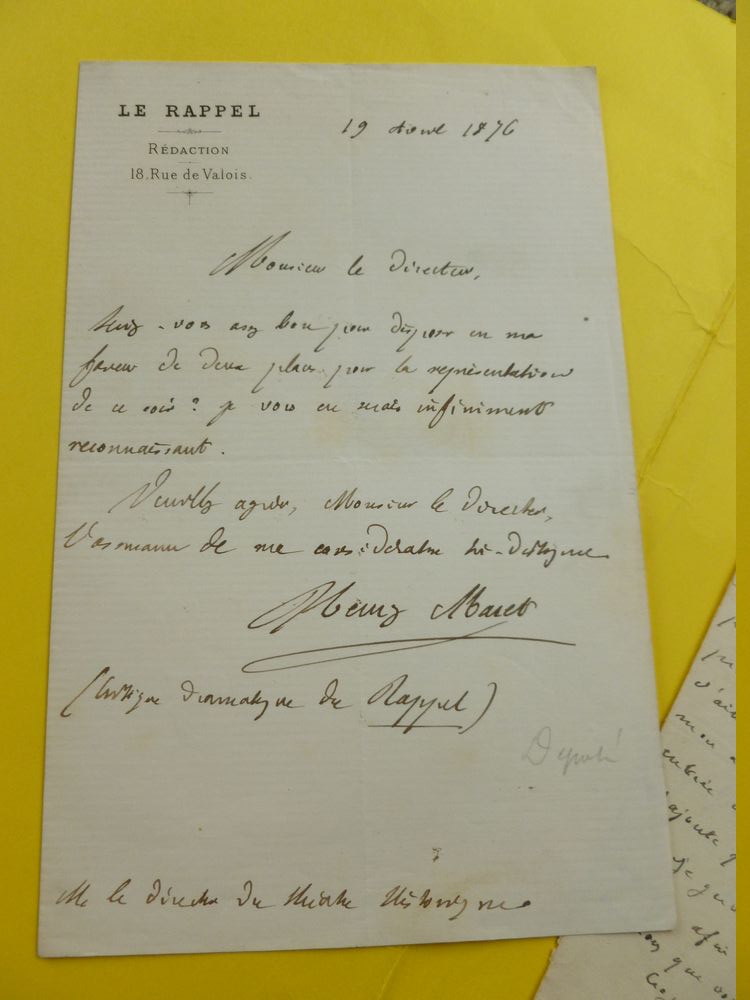 LE RAPPEL
RÉDACTION
18. Rue de Valois.
19 avril 1876
Monsieur le Directeur,
Serez-vous assez bon pour disposer en ma
faveur de deux places pour la représentation
de ce soir ? je vous en serais infiniment
reconnaissant.
Veuillez agréer, Monsieur le Directeur,
l'assurance de ma considération très-distinguée
Henry Maret
(Critique dramatique du Rappel)
Député
M. le directeur du théâtre Historique
d'ai
mon
entrée
ajoute
afin
que